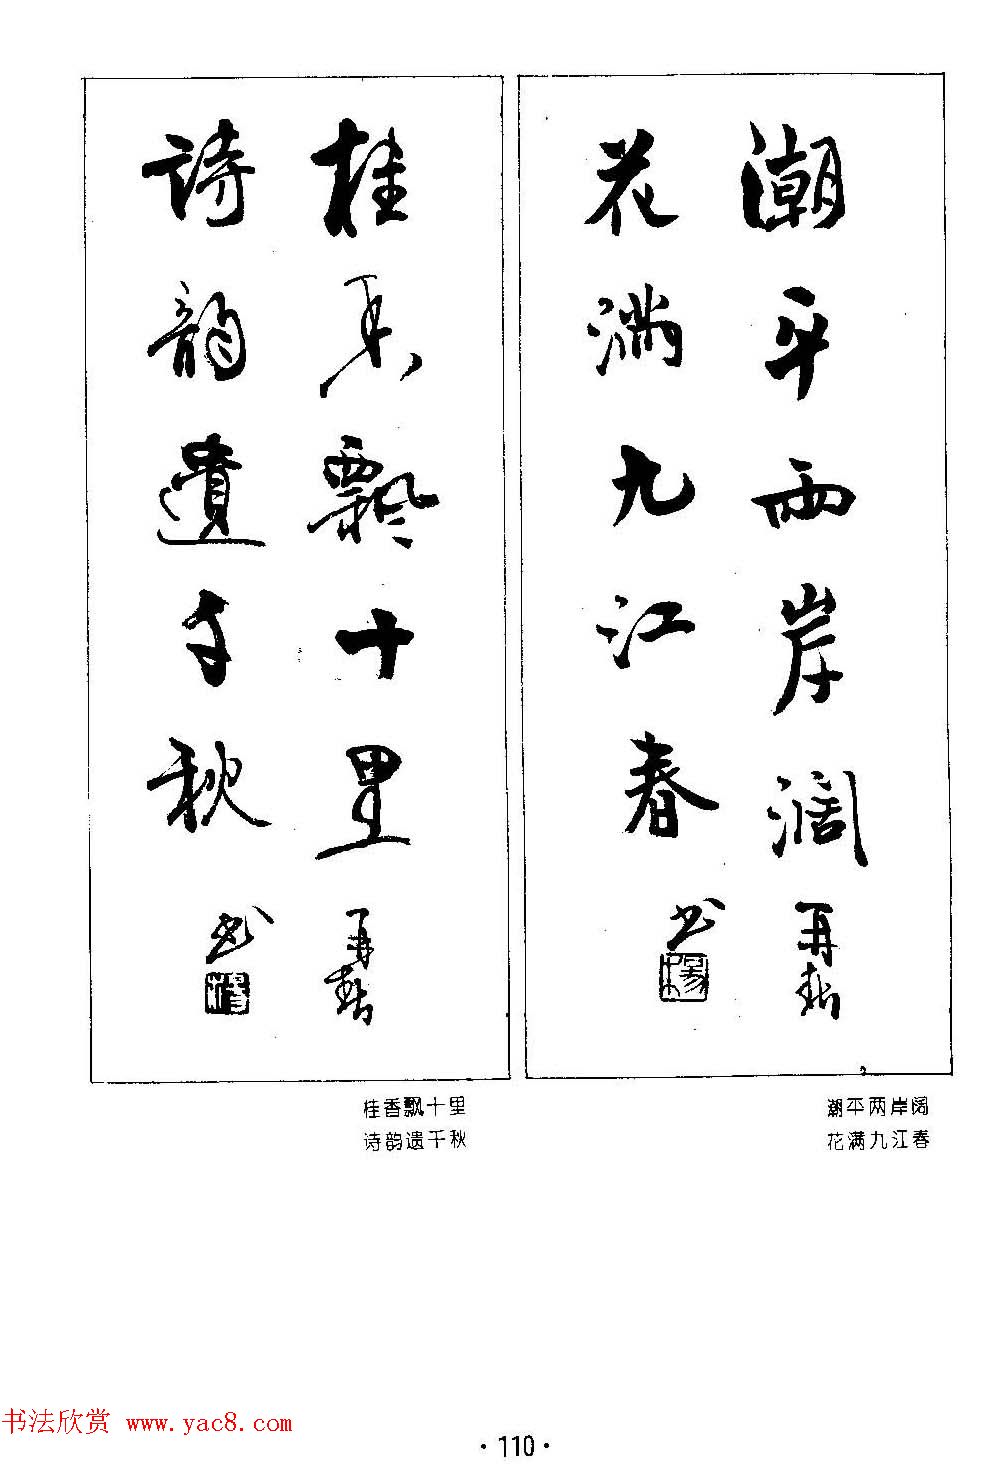 潮平两岸阔
再新
花满九江春
书
桂香飘十里
再新
诗韵遗千秋
书
潮平两岸阔
花满九江春
桂香飘十里
诗韵遗千秋
书法欣赏 www.yac8.com
·110·